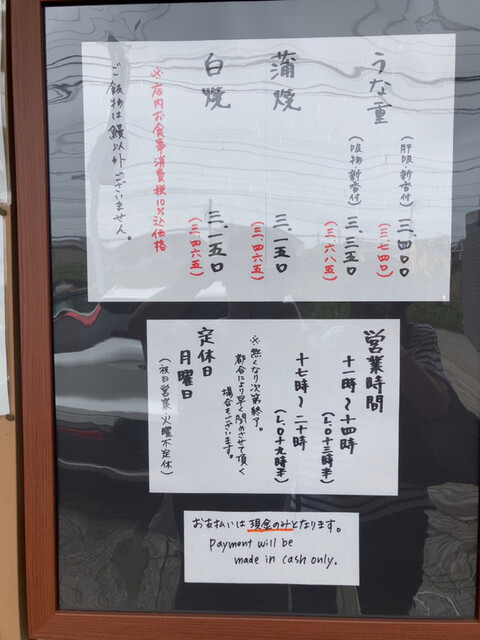 うな重
（肝吸・新香付）三、四〇〇
（三、七四〇）
（吸物・新香付）三、三五〇
（三、六八五）
蒲焼 三、一五〇
（三、四六五）
白焼 三、一五〇
（三、四六五）
※店内お食事消費税10%込価格
ご飯物は鰻以外ございません。
営業時間
十一時〜十四時
（L.O十三時半）
十七時〜二十時
（L.O十九時半）
※無くなり次第終了。
都合により早く閉めさせて頂く
場合もございます。
定休日
月曜日
（祝日営業・火曜不定休）
お支払いは現金のみとなります。
Payment will be
made in cash only.